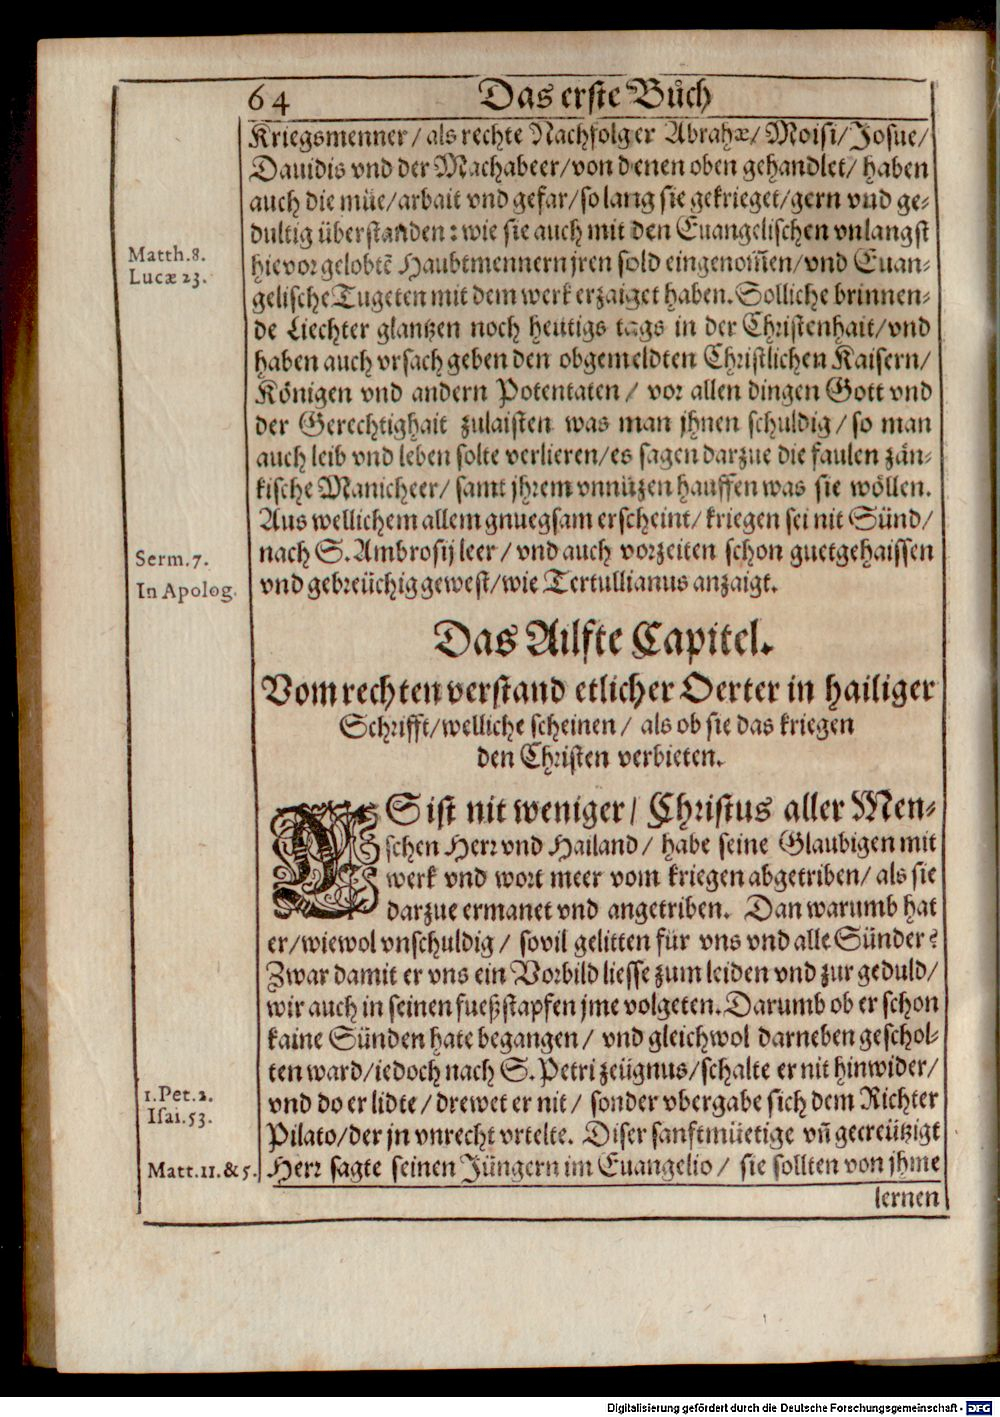 64 Das erste Bůch
Kriegsmenner / als rechte Nachfolger Abrahæ / Moisi / Josue /
Dauidis vnd der Machabeer / von denen oben gehandlet / haben
auch die müe / arbait vnd gefar / so lang sie gekrieget / gern vnd ge-
dultig überstanden : wie sie auch mit den Euangelischen vnlangst
Matth.8.
hievor gelobtē Haubtmennern jren sold eingenom̃en / vnd Euan-
Lucæ 23.
gelische Tugeten mit dem werk erzaiget haben. Solliche brinnen-
de Liechter glantzen noch heütigs tags in der Christenhait / vnd
haben auch vrsach geben den obgemeldten Christlichen Kaisern /
Königen vnd andern Potentaten / vor allen dingen Gott vnd
der Gerechtighait zulaisten was man jhnen schuldig / so man
auch leib vnd leben solte verlieren / es sagen darzue die faulen zän-
kische Manicheer / samt jhrem vnnüzen hauffen was sie wöllen.
Aus wellichem allem gnuegsam erscheint / kriegen sei nit Sünd /
Serm.7.
nach S. Ambrosij leer / vnd auch vorzeiten schon guetgehaissen
In Apolog.
vnd gebreüchig gewest / wie Tertullianus anzaigt.
Das Ailfte Capitel.
Vom rechten verstand etlicher Oerter in hailiger
Schrifft / welliche scheinen / als ob sie das kriegen
den Christen verbieten.
ES ist nit weniger / Christus aller Men-
schen Herr vnd Hailand / habe seine Glaubigen mit
werk vnd wort meer vom kriegen abgetriben / als sie
darzue ermanet vnd angetriben. Dan warumb hat
er / wiewol vnschuldig / sovil gelitten für vns vnd alle Sünder?
Zwar damit er vns ein Vorbild liesse zum leiden vnd zur geduld /
wir auch in seinen fueßstapfen jme volgeten. Darumb ob er schon
kaine Sünden hate begangen / vnd gleichwol darneben geschol-
ten ward / iedoch nach S. Petri zeügnus / schalte er nit hinwider /
1.Pet.2.
vnd do er lidte / drewet er nit / sonder vbergabe sich dem Richter
Isai.53.
Pilato / der jn vnrecht vrtelte. Diser sanftmüetige vn̄ gecreützigt
Matt.11.&5.
Herr sagte seinen Jüngern im Euangelio / sie sollten von jhme
lernen
Digitalisierung gefördert durch die Deutsche Forschungsgemeinschaft - DFG